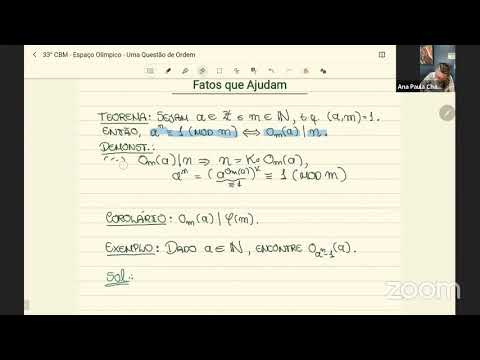 33° CBM - Espaço Olímpico - Uma Questão de Ordem
Fatos que Ajudam
TEOREMA: SEJAM a ∈ ℤ E m ∈ ℕ, t.q. (a,m)=1.
ENTÃO, aⁿ ≡ 1 (MOD m) ⇔ Oₘ(a) | n.
DEMONST.:
Oₘ(a) | n ⇒ n = K·Oₘ(a),
aⁿ = (a^{Oₘ(a)})^K ≡ 1 (MOD m)
≡1
COROLÁRIO: Oₘ(a) | φ(m).
EXEMPLO: DADO a ∈ ℕ, ENCONTRE O_{aⁿ-1}(a).
Sol.:
Ana Paula Cha...
zoom